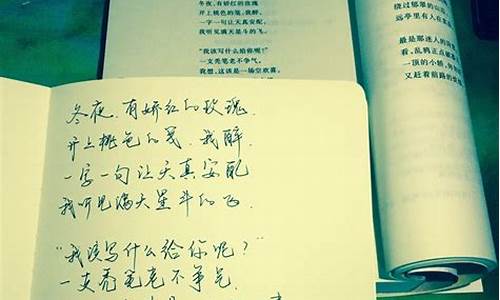 冬夜,有娇红的玫瑰
开上桃色的笺,我醉,
一字一句让天真安配,
我听见满天星斗的飞。
"我该写什么给你呢?"
一支秃笔老不争气,
我想,这该是一场空欢喜,
绕过郁翠的山
远亭里有人在
最是那迷人的
看,乱鸦正点
一顶的小轿,
又赶着前路的
冬夜,有娇红的玫瑰,
开上桃色的笺,我醉,
一字一句让天真安配
我听见满天星斗的飞.
"我该写什么给你呢?"
一支秃笔老不争气,